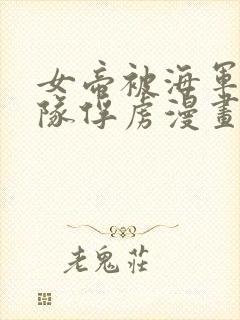 女帝被海軍
隊俘虏漫畫
老鬼莊